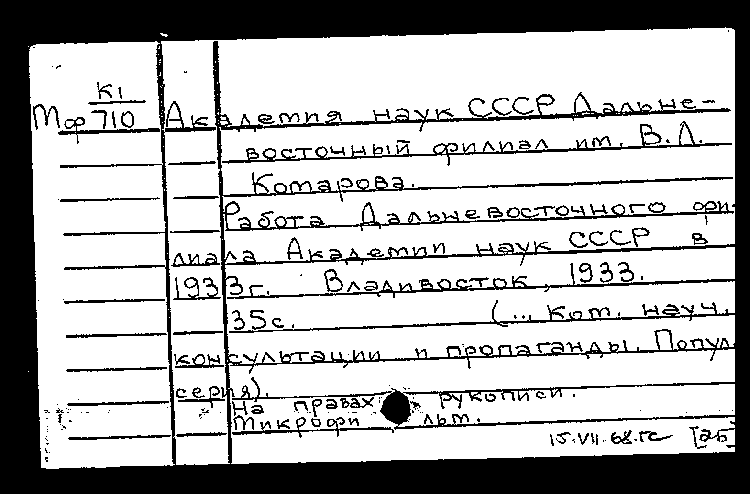 К1
Мф 710 Академия наук СССР Дальне-
восточный филиал им. В.Л.
Комарова.
Работа Дальневосточного фи-
лиала Академии наук СССР в
1933г. Владивосток, 1933.
35с. (... Ком. науч.
консультации и пропаганды. Попул.
серия).
На правах рукописи.
Микрофи льм.
15.VII.68.гс [2Б]